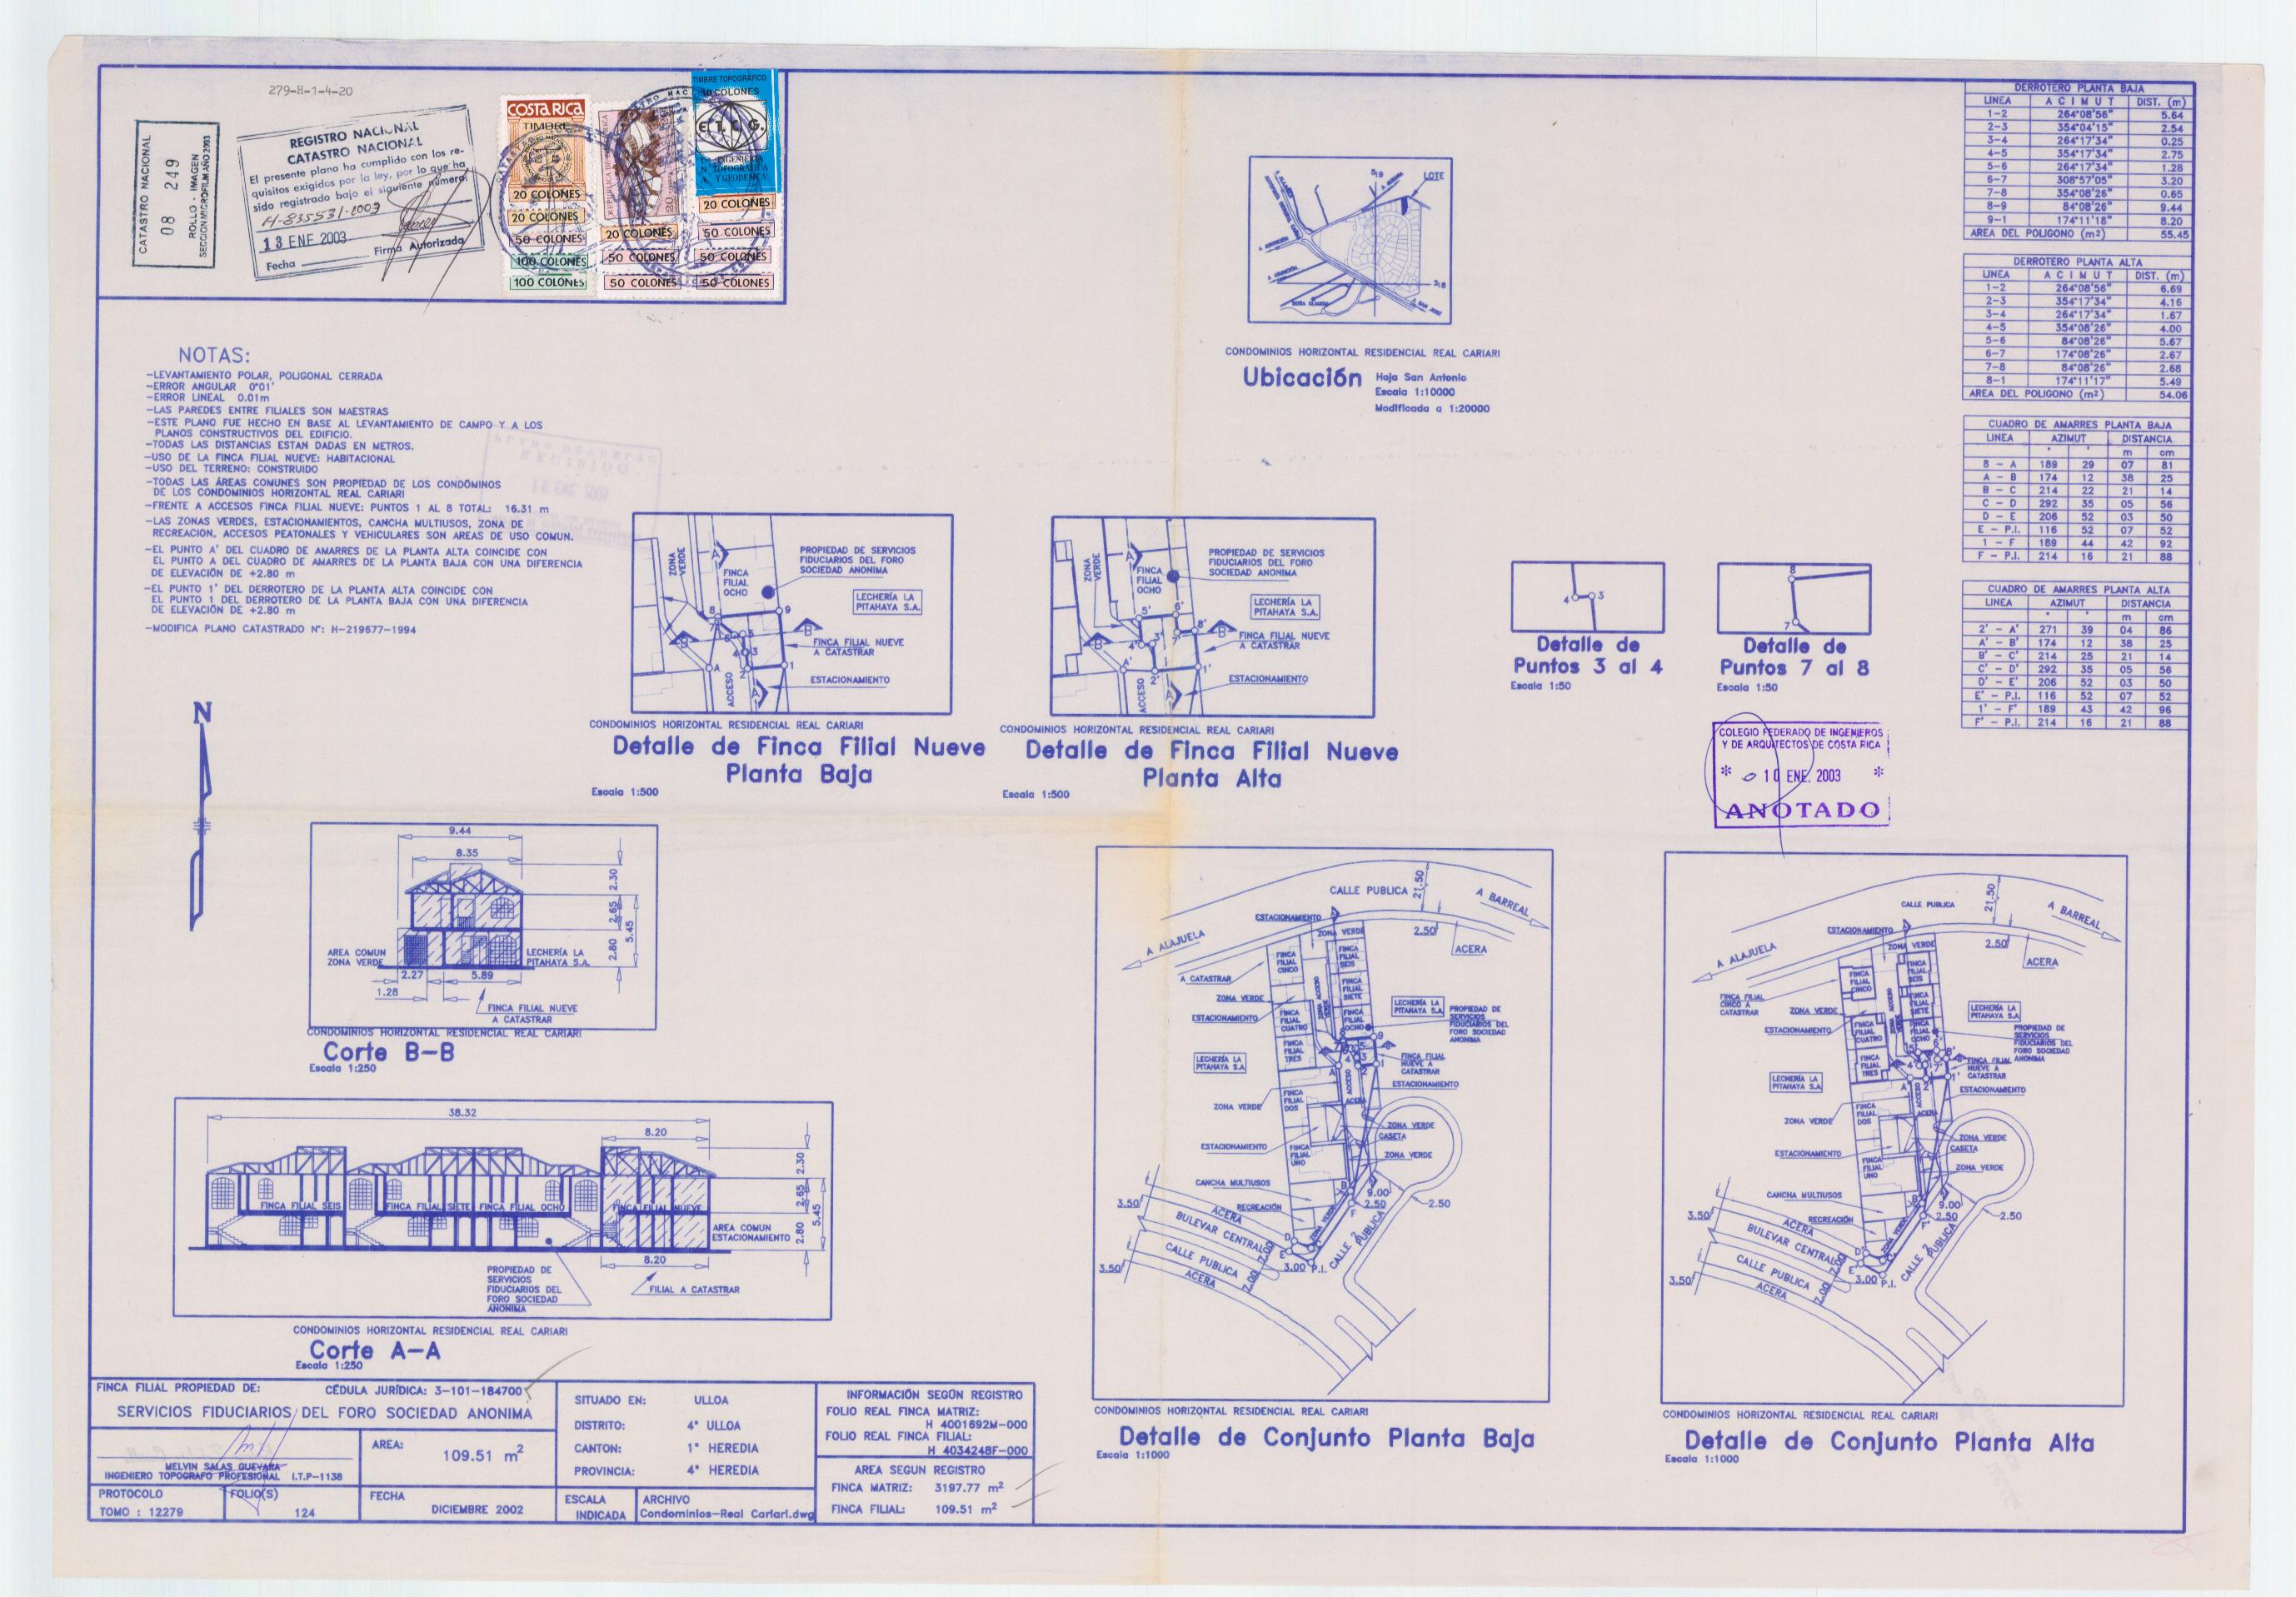 279-H-1-4-20
CATASTRO NACIONAL
08 249
ROLLO - IMAGEN
SECCION MICROFILM AÑO 2003
REGISTRO NACIONAL
CATASTRO NACIONAL
El presente plano ha cumplido con los re-
quisitos exigidos por la ley, por lo que ha
sido registrado bajo el siguiente número:
H-835531-2003
13 ENE 2003
Fecha
Firma Autorizada
COSTA RICA
TIMBRE
20 COLONES
20 COLONES
50 COLONES
100 COLONES
100 COLONES
20 COLONES
50 COLONES
50 COLONES
TIMBRE TOPOGRÁFICO
COLONES
E.T.C.G.
INGENIERIA
TOPOGRAFICA
Y GEODESICA
20 COLONES
50 COLONES
50 COLONES
50 COLONES
NOTAS:
-LEVANTAMIENTO POLAR, POLIGONAL CERRADA
-ERROR ANGULAR 0°01'
-ERROR LINEAL 0.01m
-LAS PAREDES ENTRE FILIALES SON MAESTRAS
-ESTE PLANO FUE HECHO EN BASE AL LEVANTAMIENTO DE CAMPO Y A LOS
PLANOS CONSTRUCTIVOS DEL EDIFICIO.
-TODAS LAS DISTANCIAS ESTAN DADAS EN METROS.
-USO DE LA FINCA FILIAL NUEVE: HABITACIONAL
-USO DEL TERRENO: CONSTRUIDO
-TODAS LAS ÁREAS COMUNES SON PROPIEDAD DE LOS CONDÓMINOS
DE LOS CONDOMINIOS HORIZONTAL REAL CARIARI
-FRENTE A ACCESOS FINCA FILIAL NUEVE: PUNTOS 1 AL 8 TOTAL: 16.31 m
-LAS ZONAS VERDES, ESTACIONAMIENTOS, CANCHA MULTIUSOS, ZONA DE
RECREACION, ACCESOS PEATONALES Y VEHICULARES SON AREAS DE USO COMUN.
-EL PUNTO A' DEL CUADRO DE AMARRES DE LA PLANTA ALTA COINCIDE CON
EL PUNTO A DEL CUADRO DE AMARRES DE LA PLANTA BAJA CON UNA DIFERENCIA
DE ELEVACIÓN DE +2.80 m
-EL PUNTO 1' DEL DERROTERO DE LA PLANTA ALTA COINCIDE CON
EL PUNTO 1 DEL DERROTERO DE LA PLANTA BAJA CON UNA DIFERENCIA
DE ELEVACIÓN DE +2.80 m
-MODIFICA PLANO CATASTRADO N°: H-219677-1994
LOTE
CONDOMINIOS HORIZONTAL RESIDENCIAL REAL CARIARI
Ubicación
Hoja San Antonio
Escala 1:10000
Modificada a 1:20000
DERROTERO PLANTA BAJA
LINEA A C I M U T DIST. (m)
1-2 264°08'56" 5.64
2-3 354°04'15" 2.54
3-4 264°17'34" 0.25
4-5 354°17'34" 2.75
5-6 264°17'34" 1.28
6-7 308°57'05" 3.20
7-8 354°08'26" 0.65
8-9 84°08'26" 9.44
9-1 174°11'18" 8.20
AREA DEL POLIGONO (m²) 55.45
DERROTERO PLANTA ALTA
LINEA A C I M U T DIST. (m)
1-2 264°08'56" 6.69
2-3 354°17'34" 4.16
3-4 264°17'34" 1.67
4-5 354°08'26" 4.00
5-6 84°08'26" 5.67
6-7 174°08'26" 2.67
7-8 84°08'26" 2.68
8-1 174°11'17" 5.49
AREA DEL POLIGONO (m²) 54.06
CUADRO DE AMARRES PLANTA BAJA
LINEA AZIMUT DISTANCIA
° ' m cm
8 - A 189 29 07 81
A - B 174 12 38 25
B - C 214 22 21 14
C - D 292 35 05 56
D - E 206 52 03 50
E - P.I. 116 52 07 52
1 - F 189 44 42 92
F - P.I. 214 16 21 88
CUADRO DE AMARRES PLANTA ALTA
LINEA AZIMUT DISTANCIA
° ' m cm
2' - A' 271 39 04 86
A' - B' 174 12 38 25
B' - C' 214 25 21 14
C' - D' 292 35 05 56
D' - E' 206 52 03 50
E' - P.I. 116 52 07 52
1' - F' 189 43 42 96
F' - P.I. 214 16 21 88
ZONA VERDE
A
FINCA
FILIAL
OCHO
PROPIEDAD DE SERVICIOS
FIDUCIARIOS DEL FORO
SOCIEDAD ANONIMA
LECHERÍA LA
PITAHAYA S.A.
FINCA FILIAL NUEVE
A CATASTRAR
ESTACIONAMIENTO
ACCESO
CONDOMINIOS HORIZONTAL RESIDENCIAL REAL CARIARI
Detalle de Finca Filial Nueve
Planta Baja
Escala 1:500
ZONA VERDE
A
FINCA
FILIAL
OCHO
PROPIEDAD DE SERVICIOS
FIDUCIARIOS DEL FORO
SOCIEDAD ANONIMA
LECHERÍA LA
PITAHAYA S.A.
FINCA FILIAL NUEVE
A CATASTRAR
ESTACIONAMIENTO
ACCESO
CONDOMINIOS HORIZONTAL RESIDENCIAL REAL CARIARI
Detalle de Finca Filial Nueve
Planta Alta
Escala 1:500
4 3
Detalle de
Puntos 3 al 4
Escala 1:50
8
7
Detalle de
Puntos 7 al 8
Escala 1:50
COLEGIO FEDERADO DE INGENIEROS
Y DE ARQUITECTOS DE COSTA RICA
* 10 ENE. 2003 *
ANOTADO
N
9.44
8.35
2.30
2.65
5.45
2.80
AREA COMUN
ZONA VERDE
LECHERÍA LA
PITAHAYA S.A.
2.27
5.89
1.28
FINCA FILIAL NUEVE
A CATASTRAR
CONDOMINIOS HORIZONTAL RESIDENCIAL REAL CARIARI
Corte B-B
Escala 1:250
38.32
8.20
2.30
2.65
5.45
2.80
FINCA FILIAL SEIS
FINCA FILIAL SIETE
FINCA FILIAL OCHO
FINCA FILIAL NUEVE
AREA COMUN
ESTACIONAMIENTO
8.20
PROPIEDAD DE
SERVICIOS
FIDUCIARIOS DEL
FORO SOCIEDAD
ANONIMA
FILIAL A CATASTRAR
CONDOMINIOS HORIZONTAL RESIDENCIAL REAL CARIARI
Corte A-A
Escala 1:250
CALLE PUBLICA
21.50
A BARREAL
ESTACIONAMIENTO
ZONA VERDE
2.50
ACERA
A ALAJUELA
A CATASTRAR
FINCA
FILIAL
CINCO
FINCA
FILIAL
SEIS
FINCA
FILIAL
SIETE
ACCESO
ZONA VERDE
ESTACIONAMIENTO
FINCA
FILIAL
CUATRO
FINCA
FILIAL
OCHO
LECHERÍA LA
PITAHAYA S.A.
PROPIEDAD DE
SERVICIOS
FIDUCIARIOS DEL
FORO SOCIEDAD
ANONIMA
LECHERÍA LA
PITAHAYA S.A.
FINCA
FILIAL
TRES
FINCA FILIAL
NUEVE A
CATASTRAR
ESTACIONAMIENTO
ZONA VERDE
FINCA
FILIAL
DOS
ACCESO
ACERA
ZONA VERDE
CASETA
ESTACIONAMIENTO
FINCA
FILIAL
UNO
ZONA VERDE
CANCHA MULTIUSOS
RECREACIÓN
9.00
2.50
2.50
3.50
ACERA
BULEVAR CENTRAL
CALLE PUBLICA
ACERA
3.50
7.00
7.00
3.00 P.I.
CALLE 2
PUBLICA
CONDOMINIOS HORIZONTAL RESIDENCIAL REAL CARIARI
Detalle de Conjunto Planta Baja
Escala 1:1000
CALLE PUBLICA
21.50
A BARREAL
ESTACIONAMIENTO
ZONA VERDE
2.50
ACERA
A ALAJUELA
FINCA FILIAL
CINCO A
CATASTRAR
FINCA
FILIAL
CINCO
FINCA
FILIAL
SEIS
FINCA
FILIAL
SIETE
ZONA VERDE
ESTACIONAMIENTO
FINCA
FILIAL
CUATRO
FINCA
FILIAL
OCHO
LECHERÍA LA
PITAHAYA S.A.
PROPIEDAD DE
SERVICIOS
FIDUCIARIOS DEL
FORO SOCIEDAD
ANONIMA
FINCA
FILIAL
TRES
LECHERÍA LA
PITAHAYA S.A.
FINCA FILIAL
NUEVE A
CATASTRAR
ESTACIONAMIENTO
ZONA VERDE
FINCA
FILIAL
DOS
ACCESO
ACERA
ZONA VERDE
CASETA
ESTACIONAMIENTO
FINCA
FILIAL
UNO
ZONA VERDE
CANCHA MULTIUSOS
RECREACIÓN
9.00
2.50
2.50
3.50
ACERA
BULEVAR CENTRAL
CALLE PUBLICA
ACERA
3.50
7.00
7.00
3.00 P.I.
CALLE 2
PUBLICA
CONDOMINIOS HORIZONTAL RESIDENCIAL REAL CARIARI
Detalle de Conjunto Planta Alta
Escala 1:1000
FINCA FILIAL PROPIEDAD DE: CÉDULA JURÍDICA: 3-101-184700
SERVICIOS FIDUCIARIOS DEL FORO SOCIEDAD ANONIMA
MELVIN SALAS GUEVARA
INGENIERO TOPOGRAFO PROFESIONAL I.T.P-1138
AREA:
109.51 m²
PROTOCOLO
TOMO : 12279
FOLIO(S)
124
FECHA
DICIEMBRE 2002
SITUADO EN: ULLOA
DISTRITO: 4° ULLOA
CANTON: 1° HEREDIA
PROVINCIA: 4° HEREDIA
ESCALA
INDICADA
ARCHIVO
Condominios-Real Cariari.dwg
INFORMACIÓN SEGÚN REGISTRO
FOLIO REAL FINCA MATRIZ:
H 4001692M-000
FOLIO REAL FINCA FILIAL:
H 4034248F-000
AREA SEGUN REGISTRO
FINCA MATRIZ: 3197.77 m²
FINCA FILIAL: 109.51 m²